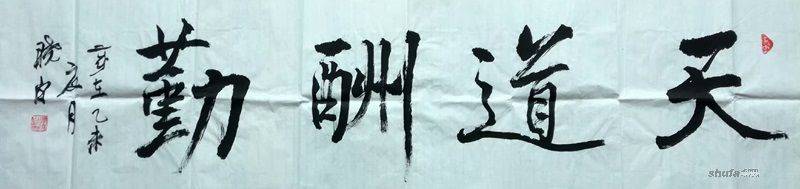 天道酬勤
岁在乙未
月
shufa